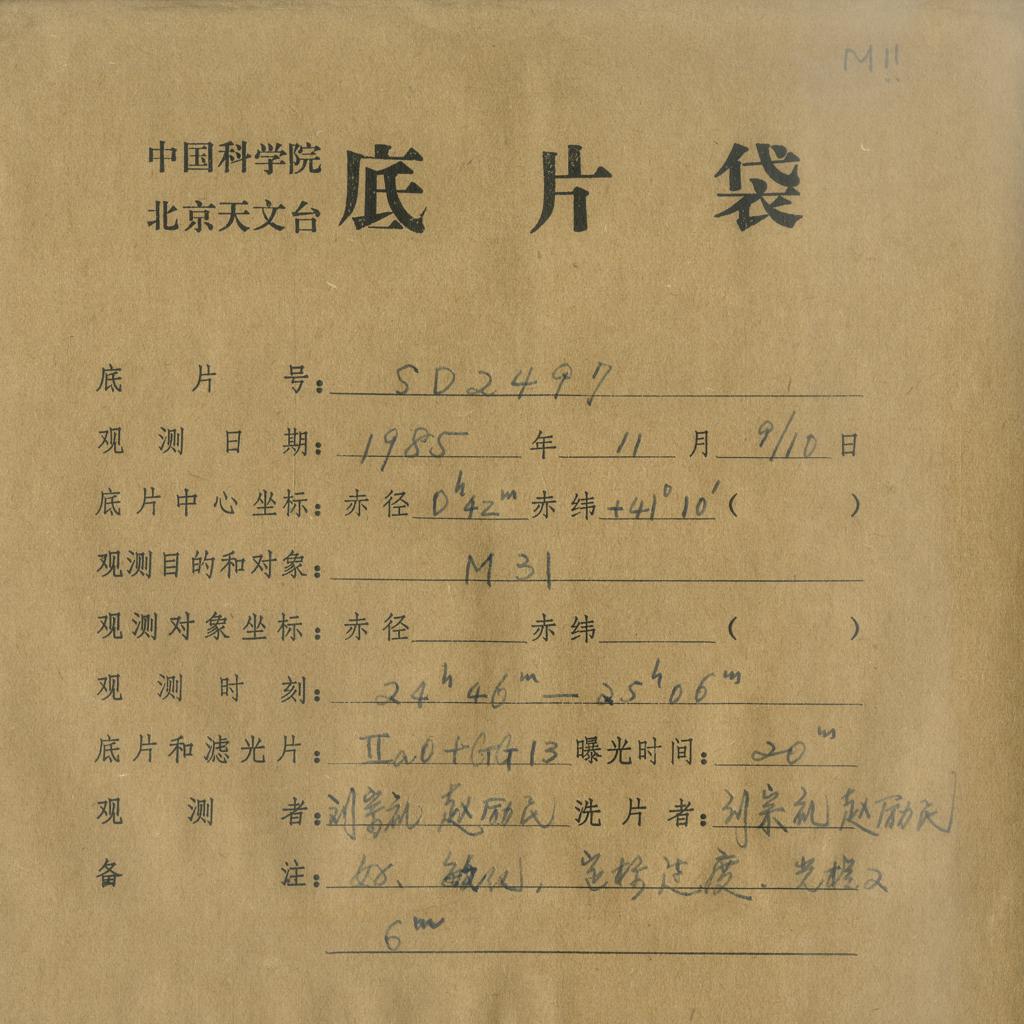 M!!
中国科学院
北京天文台
底片袋
底片号：SD2497
观测日期：1985年11月9/10日
底片中心坐标：赤径0ʰ42ᵐ赤纬+41°10′（ ）
观测目的和对象：M31
观测对象坐标：赤径 赤纬 （ ）
观测时刻：24ʰ46ᵐ—25ʰ06ᵐ
底片和滤光片：ⅡaO+GG13 曝光时间：20ᵐ
观测者：刘宗礼 赵励民 洗片者：刘宗礼 赵励民
备注：好、敏化，定标 度．光楔2
6ᵐ